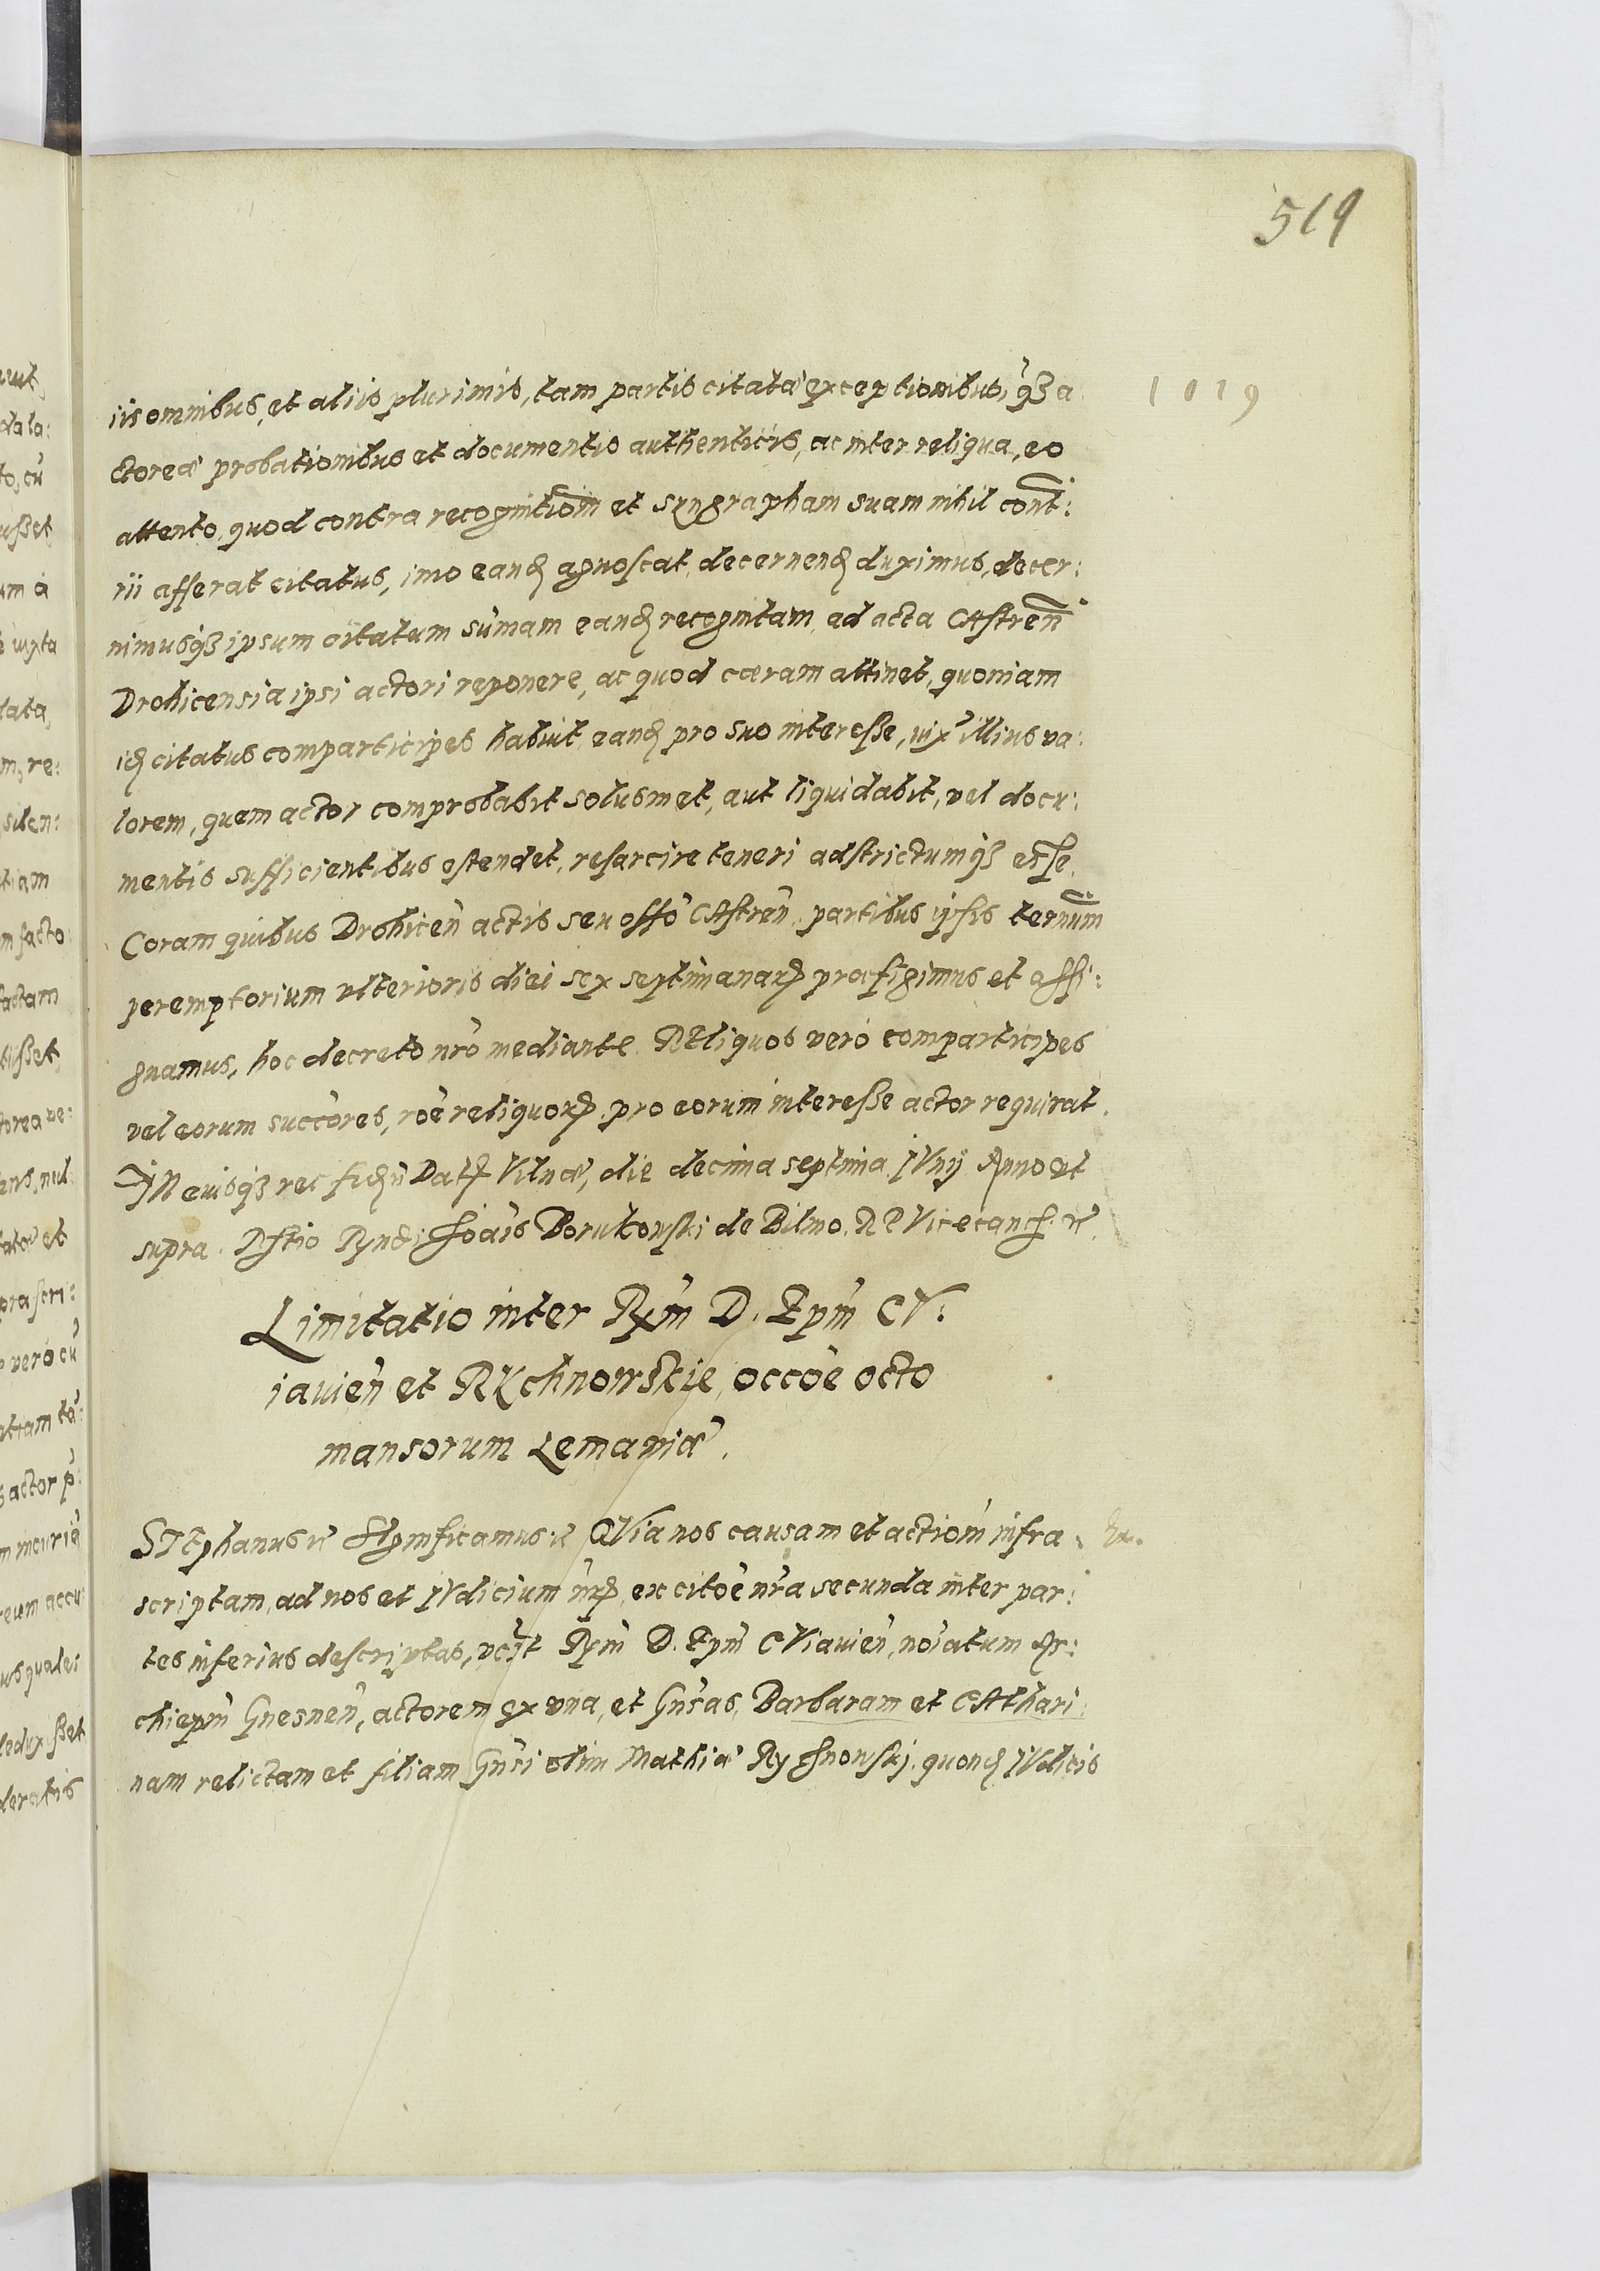 519
1019
iis omnibus, et aliis plurimis, tam partis citatæ exceptionibus, qȝ a
ctoreæ probationibus et documentis authenticis, ac inter reliqua, eo
attento, quod contra recognitiom et syngrapham suam nihil cont:
rii afferat citatus, imo eandꝫ agnoscat, decernendꝫ duximus, decer:
nimusqȝ ipsum citatum sumam eandꝫ recognitam, ad acta CAstren
Drohicensia ipsi actori reponere, ac quod ceram attinet, quoniam
idꝫ citatus comparticipes habuit, eandꝫ pro suo interesse, iuxta illius va:
lorem, quem actor comprobabit solusmet, aut liquidabit, vel docu:
mentis sufficientibus ostendet, resarcire teneri adstrictumqȝ esse.
Coram quibus Drohicen actis seu offo CAstren, partibus ipsis ternum
peremptorium ulterioris diei sex septimanarꝫ præfigimus et assi:
gnamus, hoc decreto nro mediante. REliquos vero comparticipes
vel eorum succores, roe reliquorꝫ, pro eorum interesse actor requirat.
IN cuiusqȝ rei fidꝫ Datꝫ Vilnæ, die decima septima IVnij Anno ut
supra. Joais Borukowski de Bilino. R P Vicecanc
Limitatio inter Rxm D. Epm CV:
iavien et RYchnowskie occoe octo
mansorum Lemaniæ.
STEphanus Significamus QVia nos causam et actiom infra:
scriptam, ad nos et IVdicium nrꝫ, ex citoe nra secunda inter par:
tes inferius descriptas, Rxm D. Epm CViavien, noiatum Ar:
chiepm Gnesnen, actorem ex vna, et Gnsas, Barbaram et CAthari
nam relictam et filiam Gnsi olim Mathiæ Rychnowski, quondꝫ IVdicis